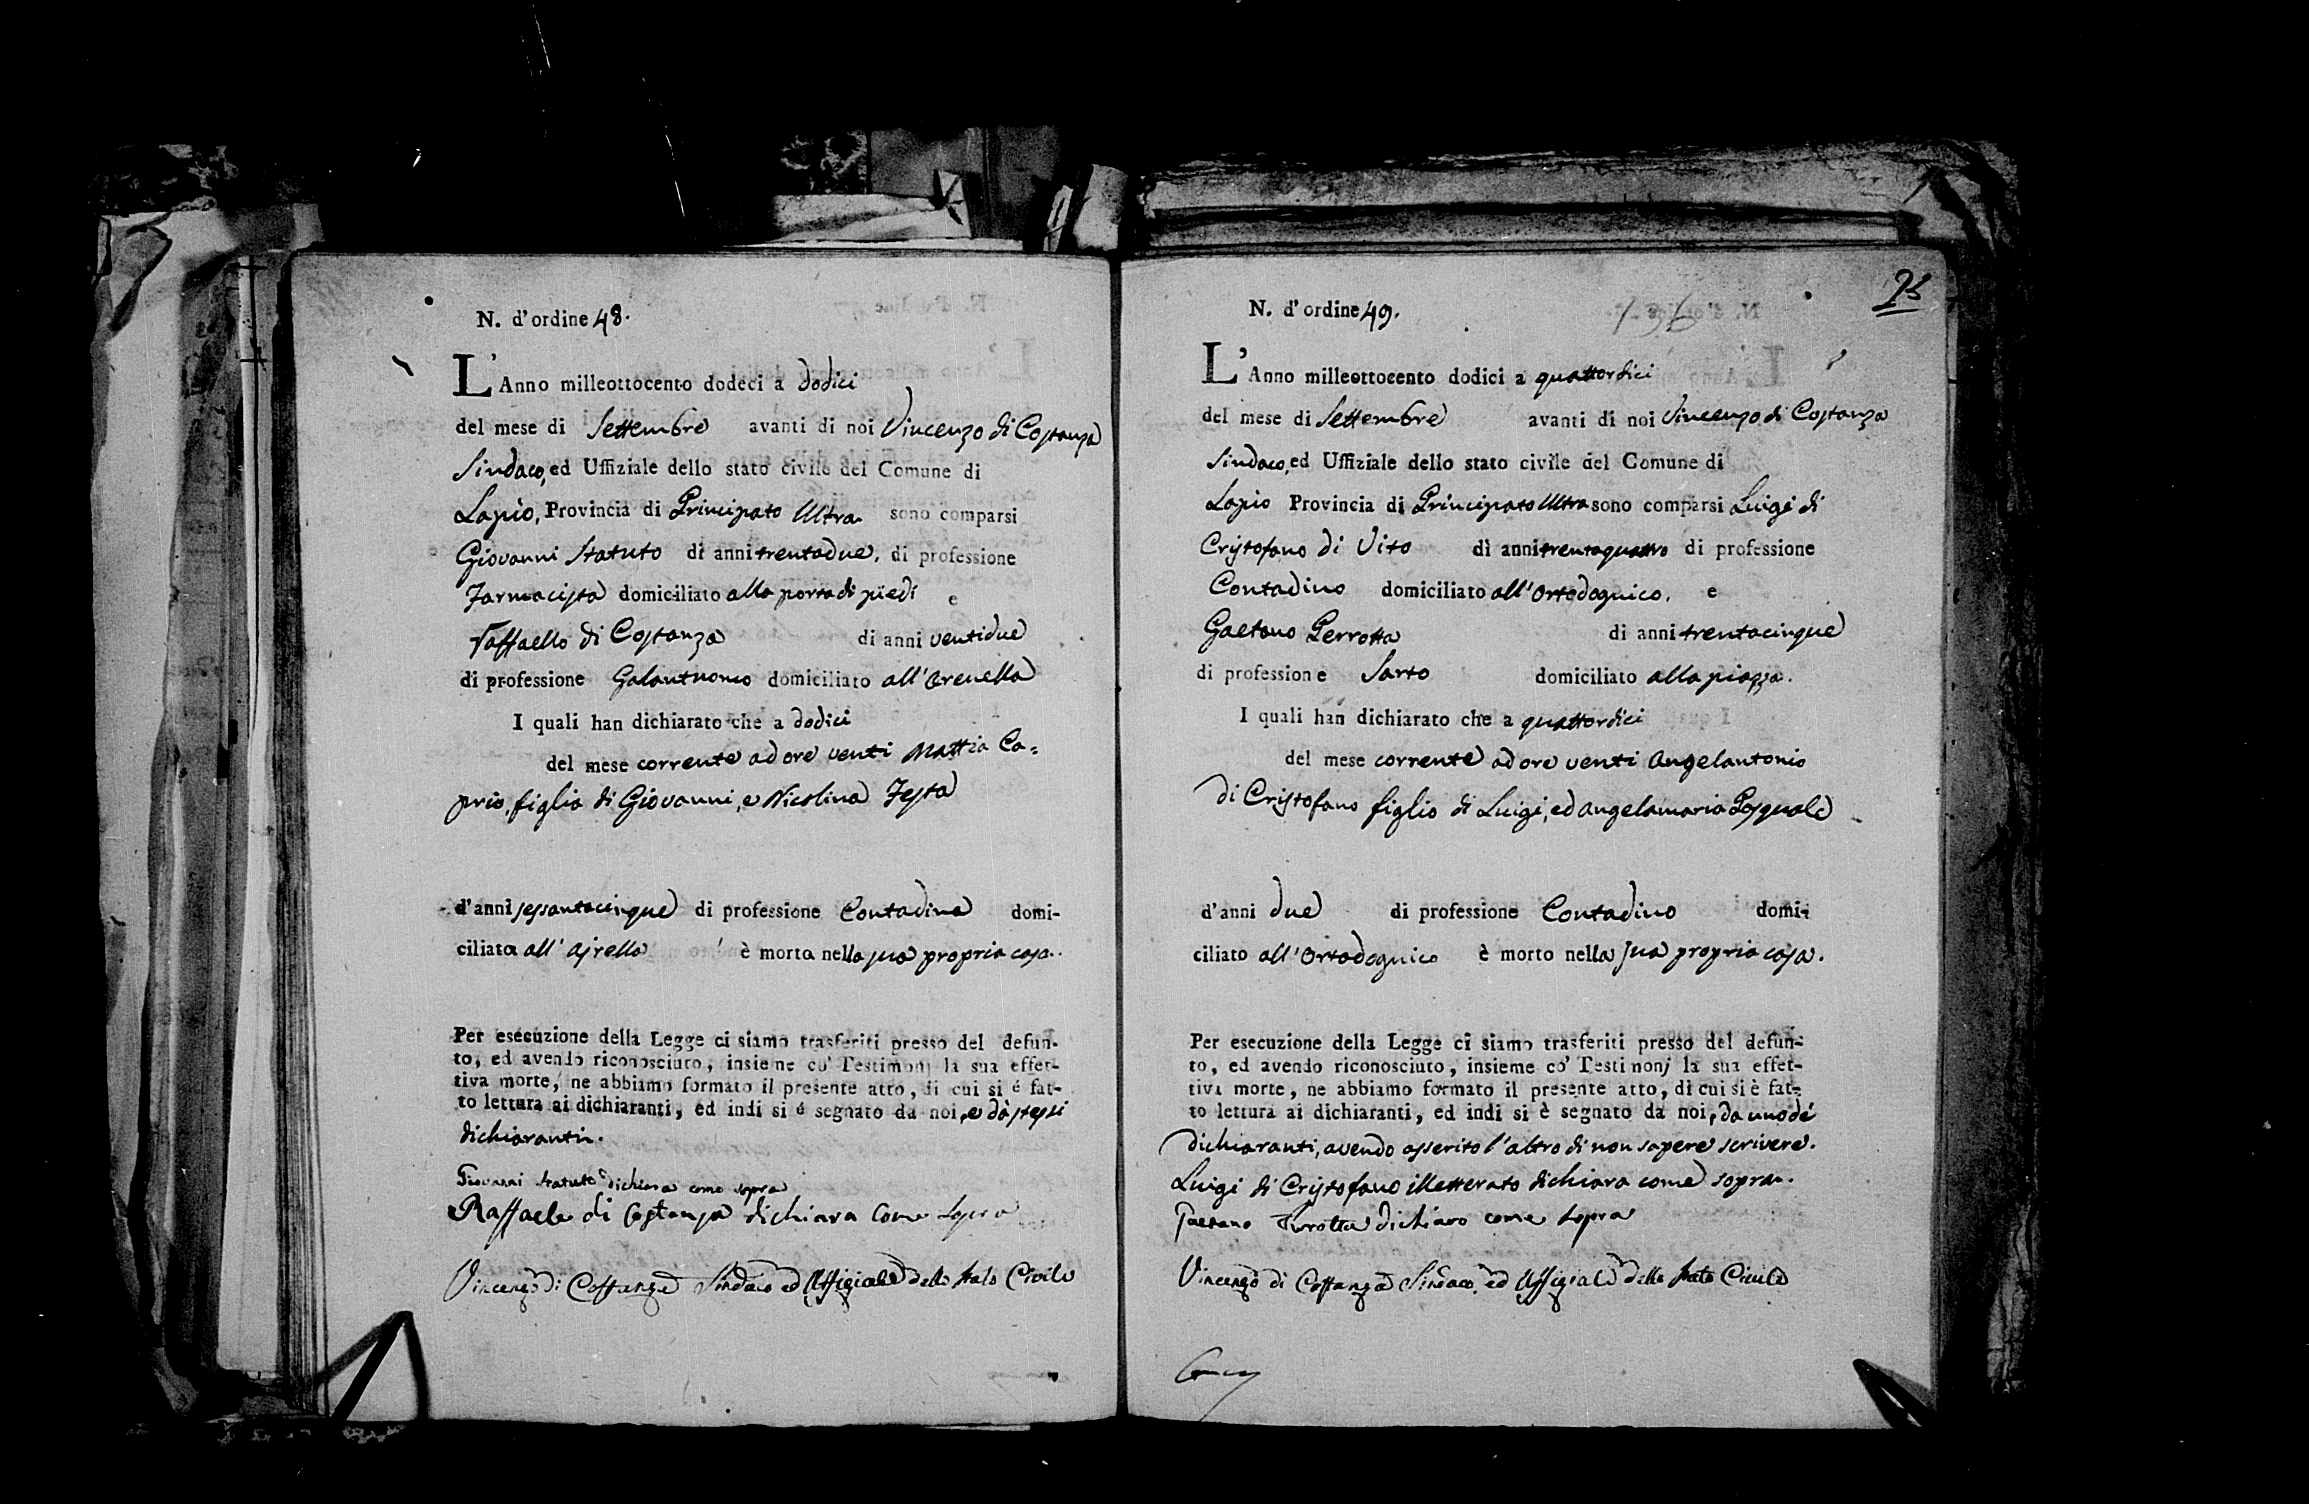 N. d'ordine 48.
L'Anno milleottocento dodeci a dodici
del mese di Settembre avanti di noi Vincenzo di Costanza
Sindaco, ed Uffiziale dello stato civile del Comune di
Lapio, Provincia di Principato Ultra sono comparsi
Giovanni Statuto di anni trentadue, di professione
Farmacista domiciliato alla porta di piedi e
Raffaello di Costanza di anni ventidue
di professione Galantuomo domiciliato all'Arenella
I quali han dichiarato che a dodici
del mese corrente ad ore venti Mattia Ca=
prio, figlia di Giovanni, e Nicolina Testa
d'anni sessantacinque di professione Contadina domi-
ciliata all'Ajrella è morta nella sua propria casa.
Per esecuzione della Legge ci siamo trasferiti presso del defun-
to, ed avendo riconosciuto, insieme co' Testimonj la sua effet-
tiva morte, ne abbiamo formato il presente atto, di cui si é fat-
to lettura ai dichiaranti, ed indi si é segnato da noi, e dà stessi
dichiaranti.
Giovanni Statuto dichiara come sopra
Raffaele di Costanza dichiara come sopra
Vincenzo di Costanza Sindaco ed Uffiziale dello stato Civile
25
N. d'ordine 49.
L'Anno milleottocento dodici a quattordici
del mese di Settembre avanti di noi Vincenzo di Costanza
Sindaco, ed Uffiziale dello stato civile del Comune di
Lapio Provincia di Principato Ultra sono comparsi Luigi di
Cristofano di Vito di anni trentaquattro di professione
Contadino domiciliato all'Ortodognico, e
Gaetano Perrotta di anni trentacinque
di professione Sarto domiciliato alla piazza.
I quali han dichiarato che a quattordici
del mese corrente ad ore venti Angelantonio
di Cristofano figlio di Luigi, ed Angelamaria Pasquale
d'anni due di professione Contadino domi-
ciliato all'Ortodognico è morto nella sua propria casa.
Per esecuzione della Legge ci siamo trasferiti presso del defun-
to, ed avendo riconosciuto, insieme co' Testimonj la sua effet-
tiva morte, ne abbiamo formato il presente atto, di cui si è fat-
to lettura ai dichiaranti, ed indi si è segnato da noi, da uno dé
dichiaranti, avendo asserito l'altro di non sapere scrivere.
Luigi di Cristofano illetterato dichiara come sopra.
Gaetano Perrotta dichiaro come sopra
Vincenzo di Costanza Sindaco, ed Uffiziale dello stato Civile